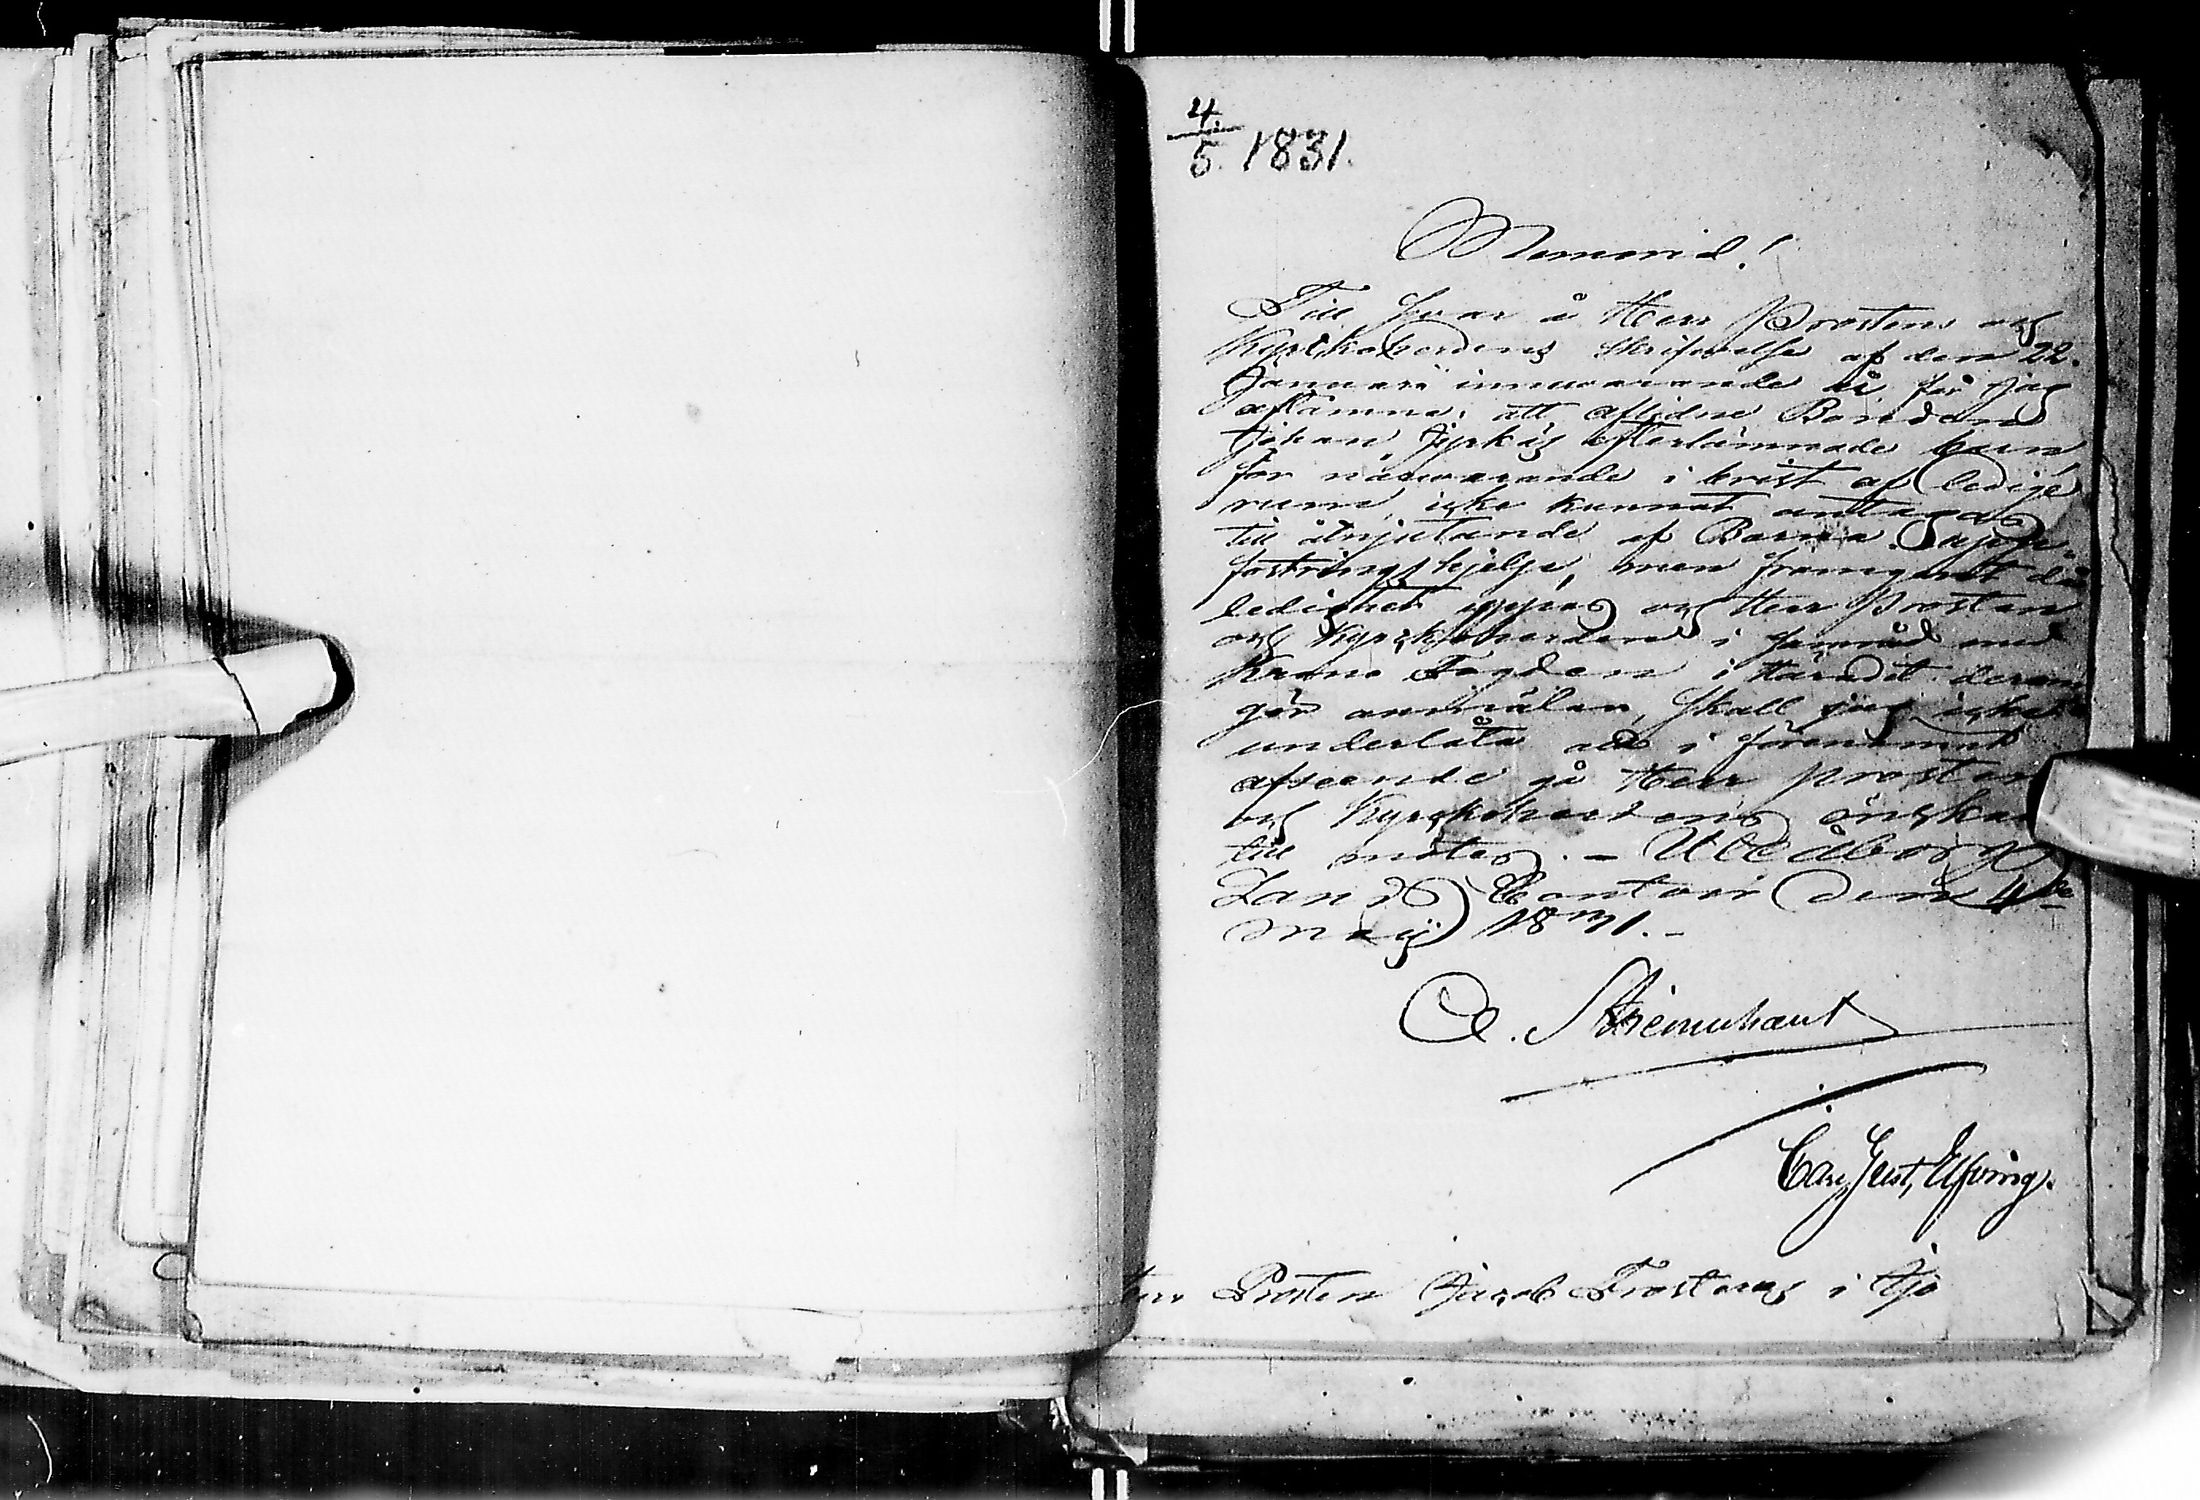 4/5. 1831.
Memorial!
Till svar å Herr Prostens och
Kyrckoherdens skrifvelse af den 22.
Januarii innevarande år får jag
aflämna, att aflidne Bonden
Johan Jyrkäs efterlämnade barn
för närvarande i brist af ledige
rum, icke kunnat antagas
till åtnjutande af Barna Upp-
fostringshjelp, men framgent då
ledighet yppas och Herr Prosten
och Kyrckoherden i samråd med
Krono Fogden i Häradet derom
gör anmälan, skall jag icke
underlåta att i förenämnt
afseende gå Herr Prosten
och Kyrckoherdens önskan
till mötes. – Uleåborgs
Lands Contoir den 4de
Maij 1831. –
C. Stjernschantz
Carl Gust. Elfving.
Herr Prosten Jacob Frosterus i Ijo